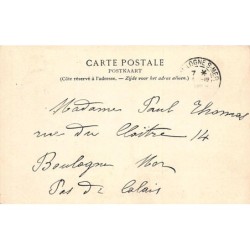 CARTE POSTALE
POSTKAART
(Côté réservé à l'adresse. — Zijde voor het adres alleen.)
LOGNE S MER
7
Madame Paul Thomas
rue du Cloître 14
Boulogne Mer
Pas de Calais